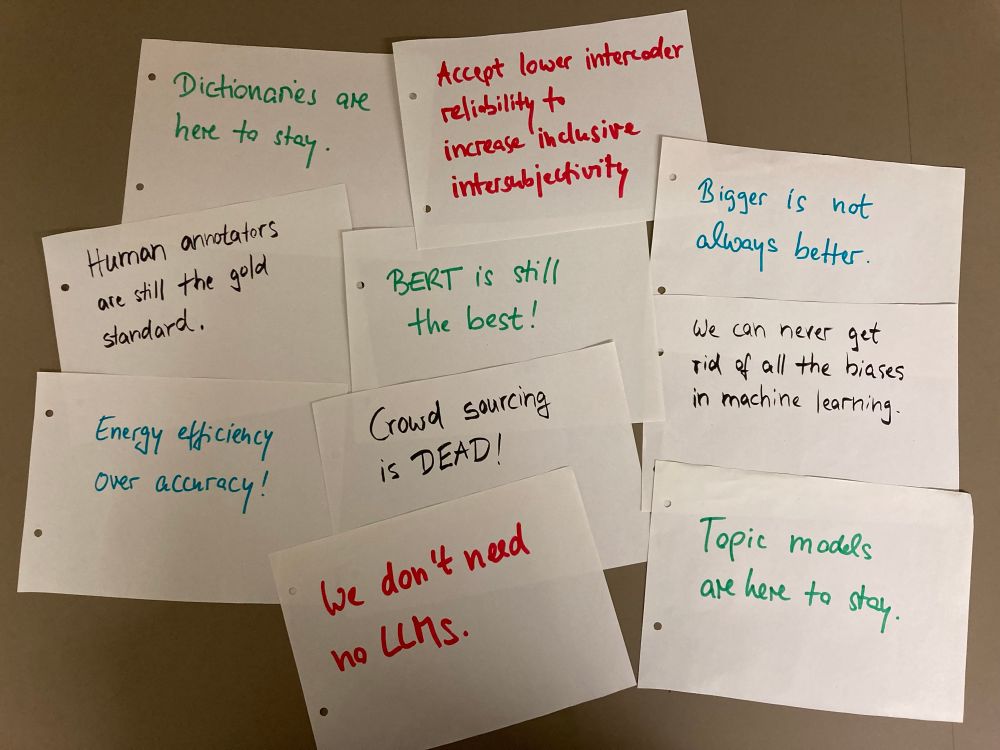 Dictionaries are
here to stay.
Accept lower intercoder
reliability to
increase inclusive
intersubjectivity
Bigger is not
always better.
Human annotators
are still the gold
standard.
BERT is still
the best!
We can never get
rid of all the biases
in machine learning.
Energy efficiency
over accuracy!
Crowd sourcing
is DEAD!
We don't need
no LLMs.
Topic models
are here to stay.